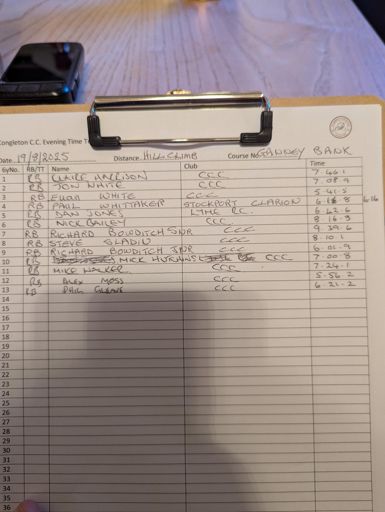 Congleton C.C. Evening Time T
Date 19/8/2025 Distance HILL CLIMB Course No GANNEY BANK
No. RB/TT Name Club Time
1 RB CLAIRE HARRISON CCC 7.46.1
2 RB JON WHITE CCC 7.08.9
3 RB Euan WHITE CCC 5.41.5
4 RB PAUL WHITTAKER STOCKPORT CLARION 6 16 8
5 RB DAN JONES LYME RC. 6 42 6
6 RB NICK BAILEY CCC 8 16.9
7 RB RICHARD BOWDITCH SNR CCC 9 39.6
8 RB STEVE GLADIN CCC 8.10.1
9 RB RICHARD BOWDITCH JNR CCC 6.01.9
10 RB MICK HUTCHINS CCC 7.00.8
11 RB MIKE WALKER CCC 7.24.1
12 RB ALEX MOSS CCC 5.56.2
13 RB PHIL CCC 6.21.2
14
15
16
17
18
19
20
21
22
23
24
25
26
27
28
29
30
31
32
33
34
35
36